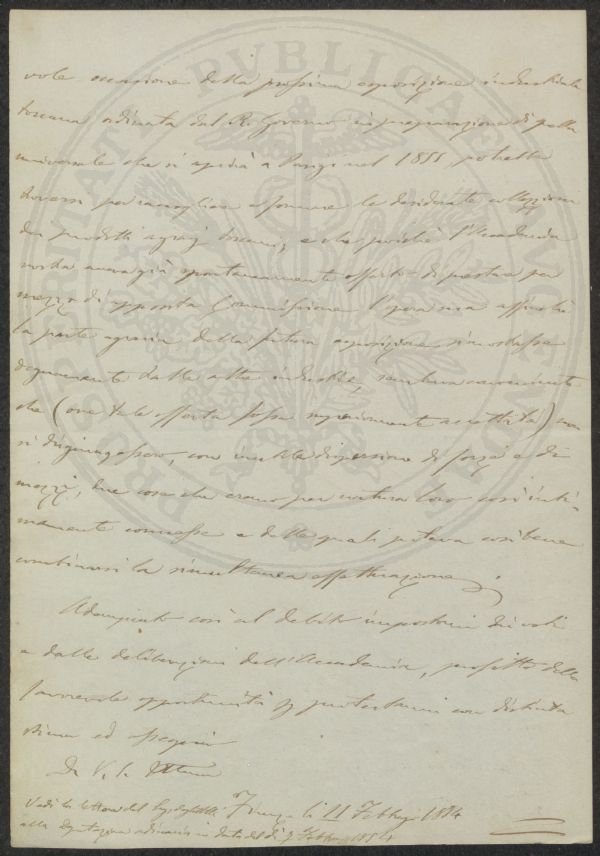 vole occasione della prossima esposizione industriale
toscana ordinata dal R. Governo in preparazione di quella
universale che si aprirà a Parigi nel 1855, potrebbe
doversi per raccogliere e formare le desiderate collezioni
dei prodotti agrarj toscani, e che poichè l'Accademia
nostra aveva già spontaneamente offerto di prestare per
mezzo di apposita Commissione l'opera sua affinchè
la parte agraria della futura esposizione si mostrasse
degnamente dalle altre industrie, sembrava conveniente
che (ove tale offerta fosse superiormente accettata) non
si disgiungessero, con inutile dispersione di forze e di
mezzi, due cose che erano per natura loro così inti-
mamente connesse e delle quali poteva così bene
combinarsi la simultanea effettuazione.
Adempiuto così al debito impostomi dai voti
e dalle deliberazioni dell'Accademia, profitto della
favorevole opportunità per protestarmi con distinta
stima ed ossequio
Di V. S. Illma
Vedi la lettera del
Firenze li 11 Febbrajo 1854
alla Deputazione ordinaria in data del dì 9 Febbrajo 1854
PROSPERITATI PVBLICAE AVGENDAE